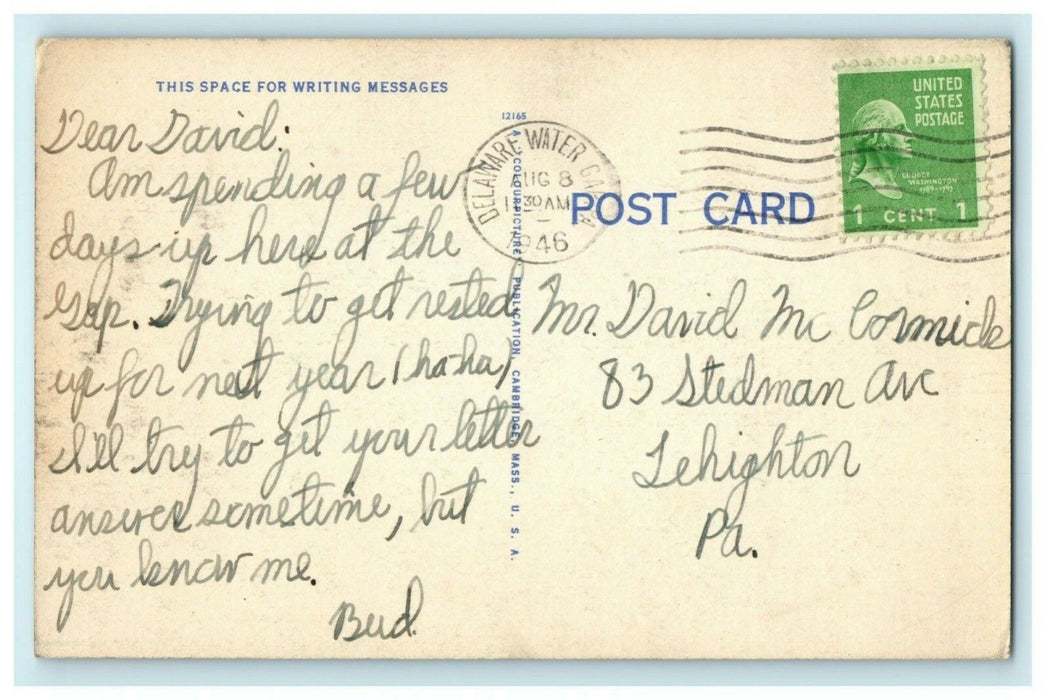 THIS SPACE FOR WRITING MESSAGES
Dear David:
Am spending a few
days up here at the
Gap. Trying to get rested
up for next year (ha-ha)
I'll try to get your letter
answered sometime, but
you know me.
Bud.
12165
A "COLOURPICTURE" PUBLICATION, CAMBRIDGE, MASS., U. S. A.
DELAWARE WATER GAP, PA
AUG 8
11 30 AM
1946
POST CARD
UNITED
STATES
POSTAGE
GEORGE
WASHINGTON
1789-1797
1 CENT 1
Mr. David Mc Cormick
83 Stedman Ave
Lehighton
Pa.